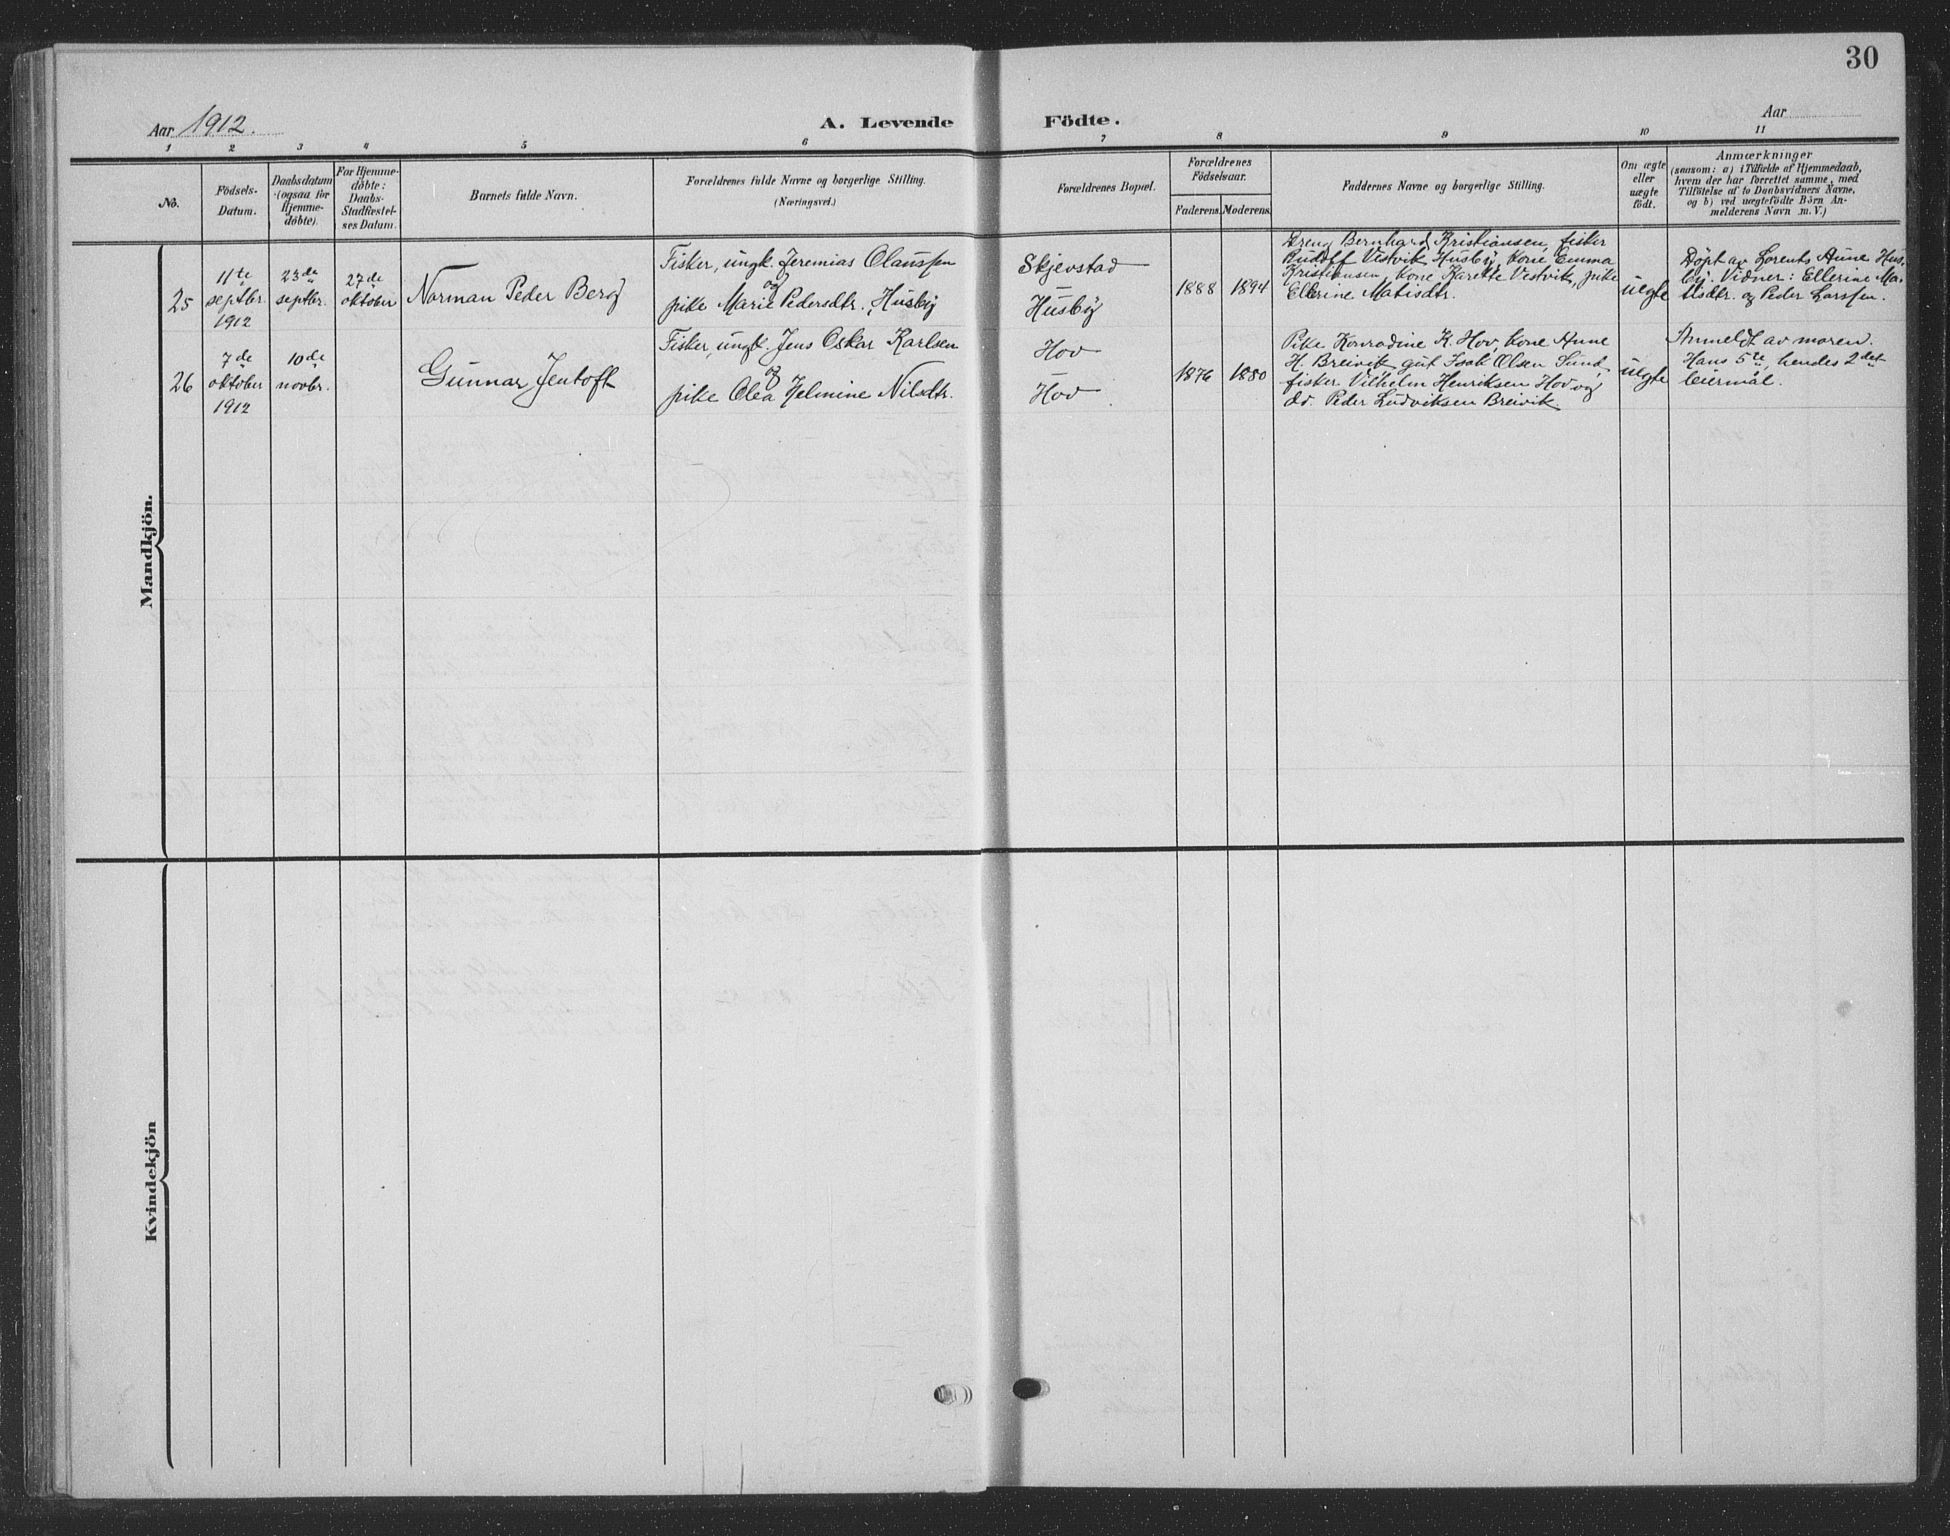 30
Aar 1912.
A. Levende Födte.
Aar
1 2 3 4 5 6 7 8 9 10 11
No.
Födsels-
Datum.
Daabsdatum
(ogsaa for
Hjemme-
döbte).
For Hjemme-
döbte:
Daabs-
Stadfæstel-
ses Datum.
Barnets fulde Navn.
Forældrenes fulde Navne og borgerlige Stilling.
(Næringsvei.)
Forældrenes Bopæl.
Forældrenes
Födselsaar.
Faderens. Moderens.
Faddernes Navne og borgerlige Stilling.
Om ægte
eller
uægte
födt.
Anmærkninger
(saasom: a) i Tilfælde af Hjemmedaab,
hvem der har forrettet samme, med
Tilföielse af to Daabsvidners Navne,
og b) ved uægtefödte Börn An-
melderens Navn m. V.)
Mandkjön.
25
11te
septbr.
1912
23de
septbr.
27de
oktober
Norman Peder Berg
Fisker, ungk. Jeremias Olaussen
og
pike Marie Pedersdtr. Husby
Skjevstad
—
Husby
1888 1894
Dreng Bernhard Kristiansen, fisker
Rudolf Vestvik Husby, kone Emma
Kristiansen, kone Karette Vestvik, pike
Ellerine Matisdtr.
uegte
Døpt av Lorents Aune Hus-
by. Vidner: Ellerine Ma-
tisdtr. og Peder Larssen.
26
7de
oktober
1912
10de
novbr.
Gunnar Jentoft
Fisker, ungk. Jens Oskar Karlsen
og
pike Olea Helmine Nilsdtr.
Hov
—
Hov
1876 1880
Pike Konradine K. Hov, kone Anne
H. Breivik, gut Isak Olsen Sund,
fisker Vilhelm Henriksen Hov og
do. Peder Ludviksen Breivik.
uegte
Anmeldt av moren.
Hans 5te, hendes 2det
leiermål.
Kvindekjön